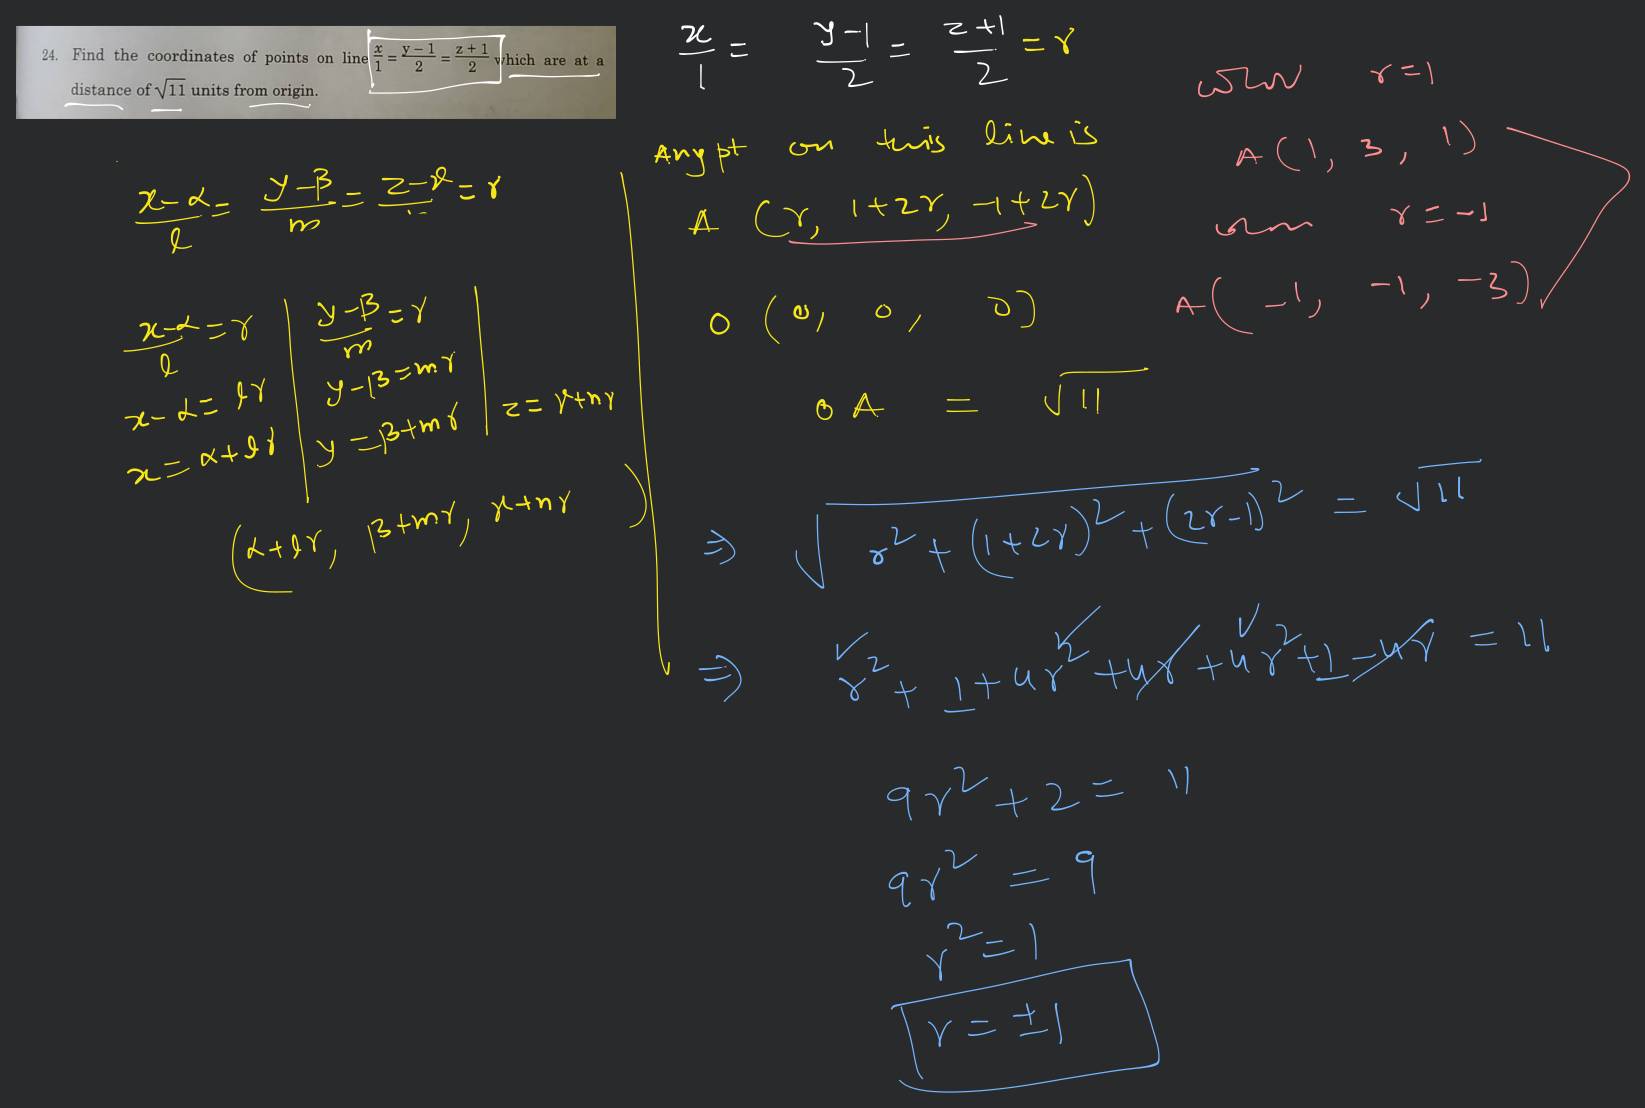 24. Find the coordinates of points on line x/1 = (y − 1)/2 = (z + 1)/2 which are at a
distance of √11 units from origin.
(x-α)/l = (y-β)/m = (z-γ)/n = r
(x-α)/l = r
x-α = lr
x = α+lr
(y-β)/m = r
y-β = mr
y = β+mr
z = γ+nr
(α+lr, β+mr, γ+nr)
x/1 = (y-1)/2 = (z+1)/2 = r
Any pt on this line is
A (r, 1+2r, -1+2r)
O (0, 0, 0)
OA = √11
⇒ √(r² + (1+2r)² + (2r-1)²) = √11
⇒ r² + 1 + 4r² + 4r + 4r² + 1 - 4r = 11
9r² + 2 = 11
9r² = 9
r² = 1
r = ±1
when r=1
A (1, 3, 1)
when r = -1
A (-1, -1, -3)